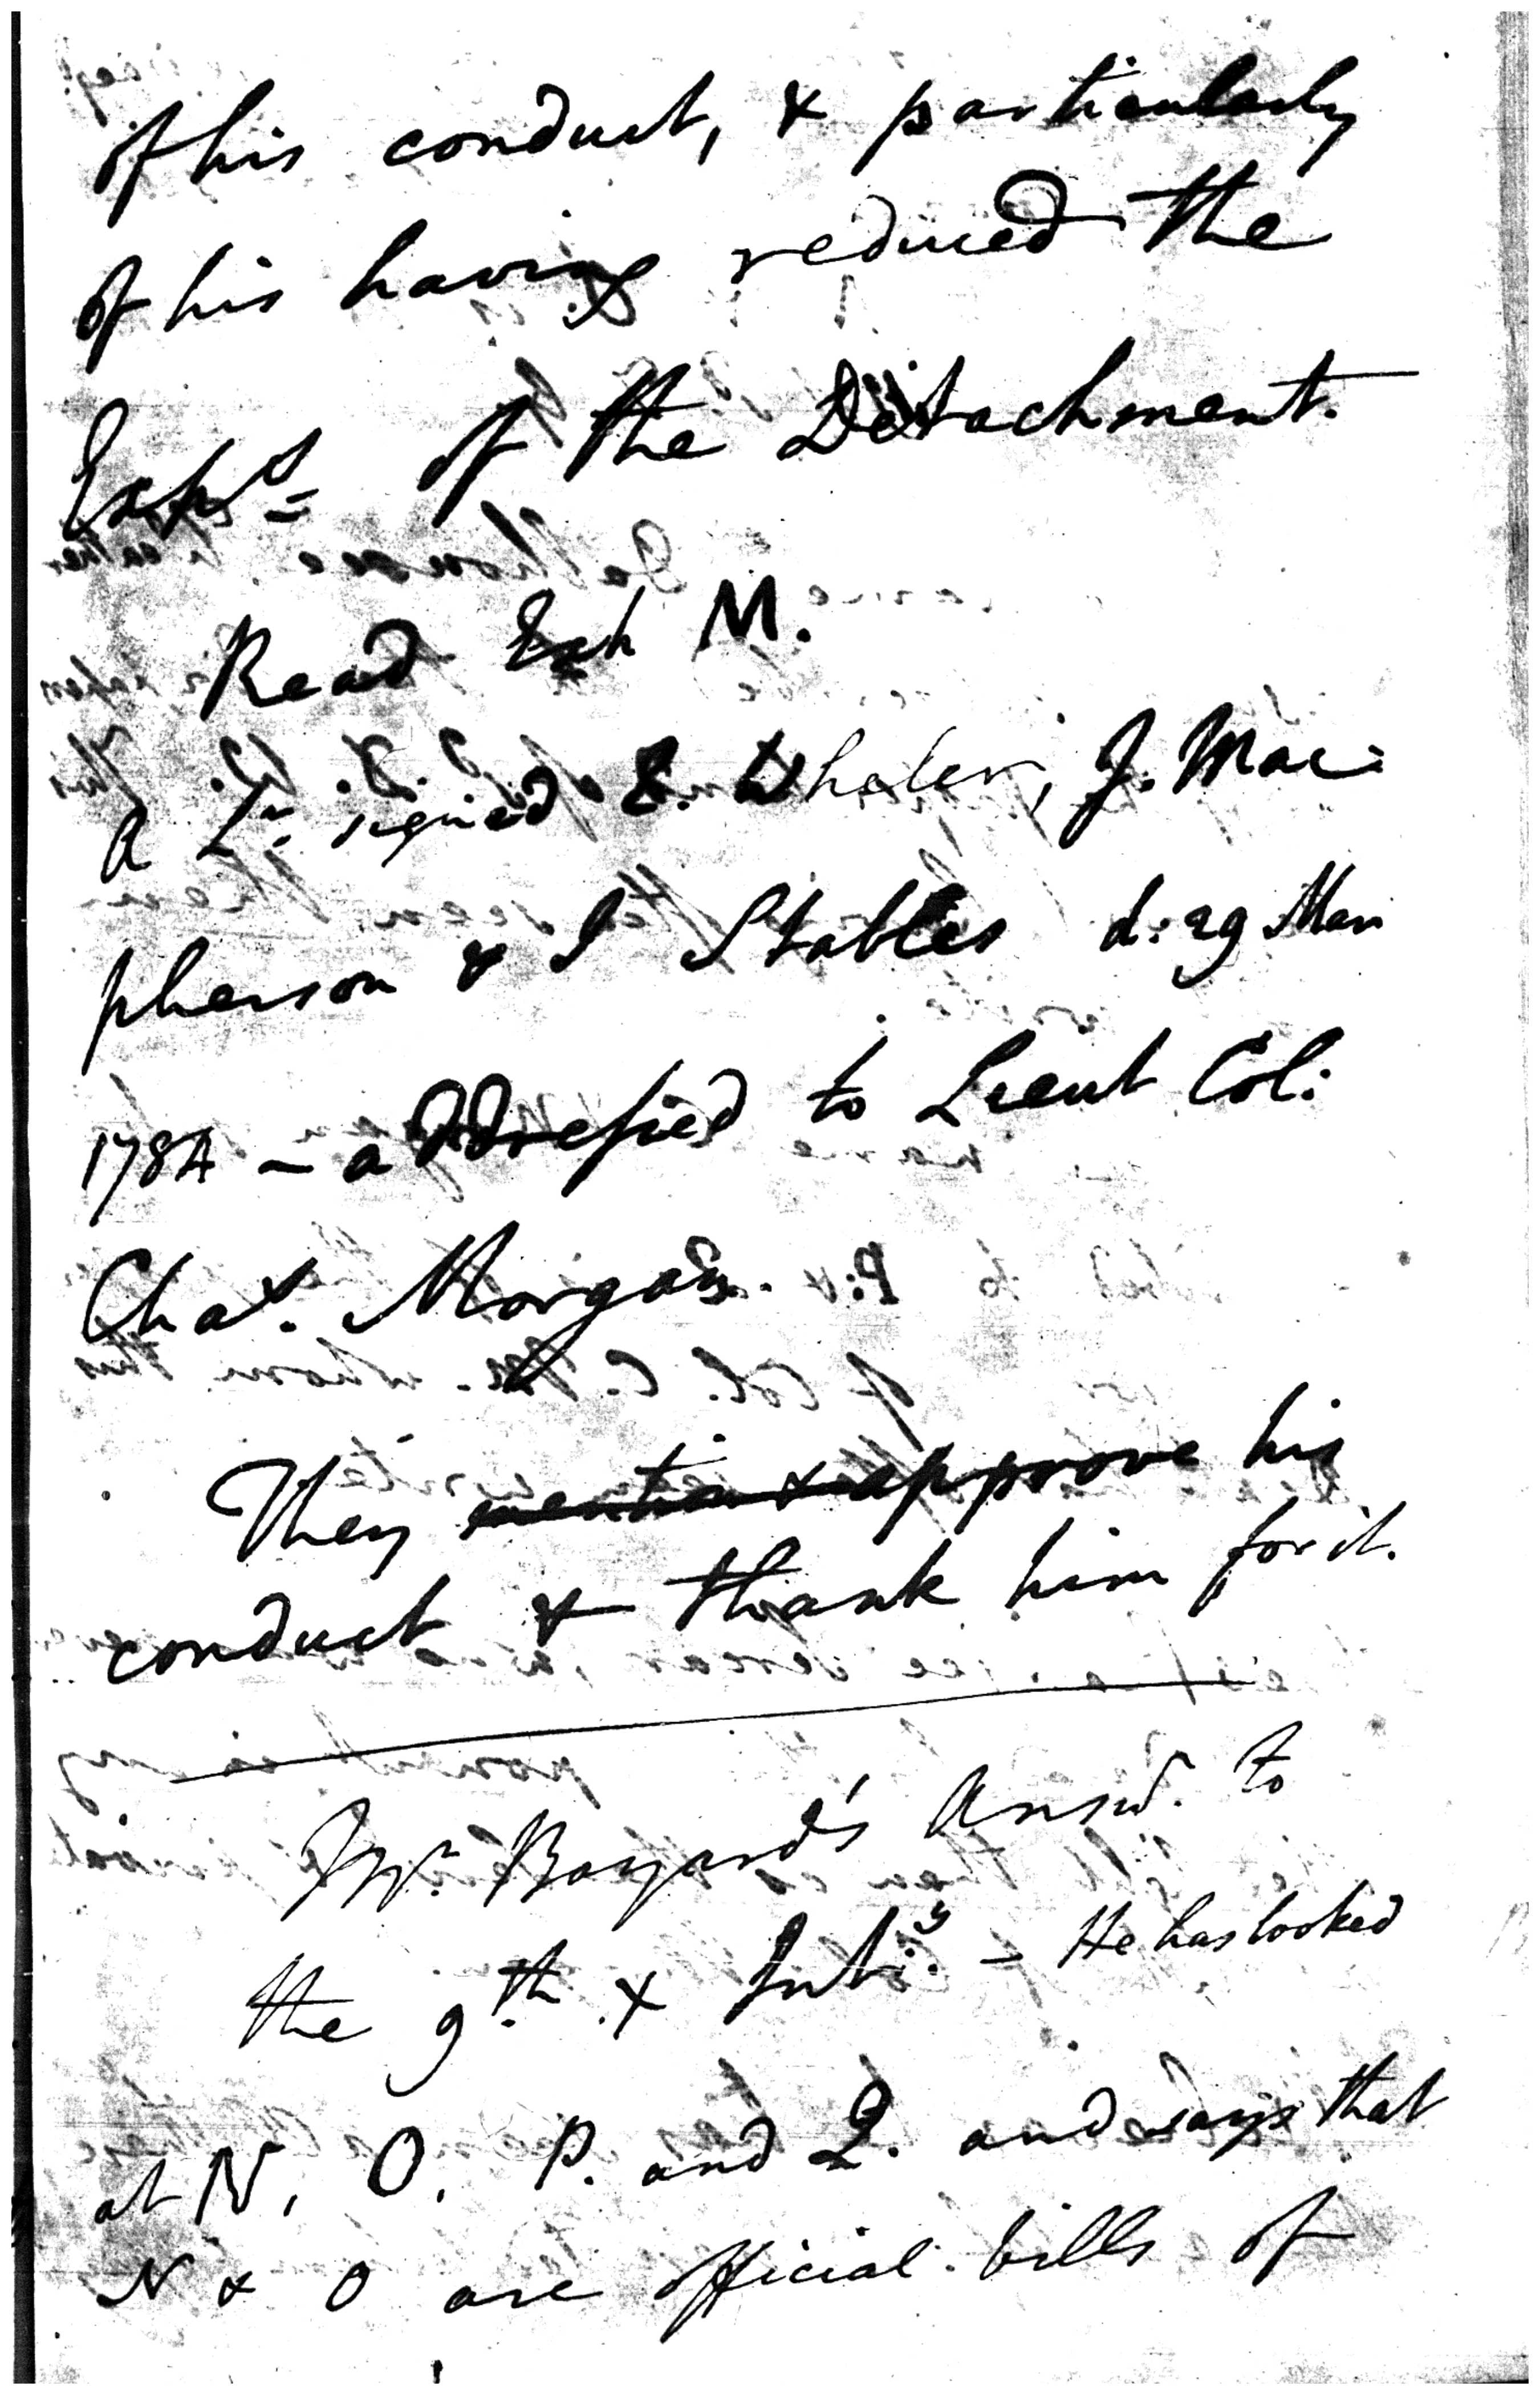 of his conduct, & particularly
of his having reduced the
Exps. of the Detachment.
Read Exh M.
A Lr. signed E. Wheler, J. Mac:
pherson & J Stables d: 29 Mar
1784 - addressed to Lieut Col:
Chas. Morgan.
They mention & approve his
conduct & thank him for it.
Mr. Boyard's Answr. to
the 9th. X Inty. - He has looked
at N, O, P. and Q. and says that
N & O are official bills of